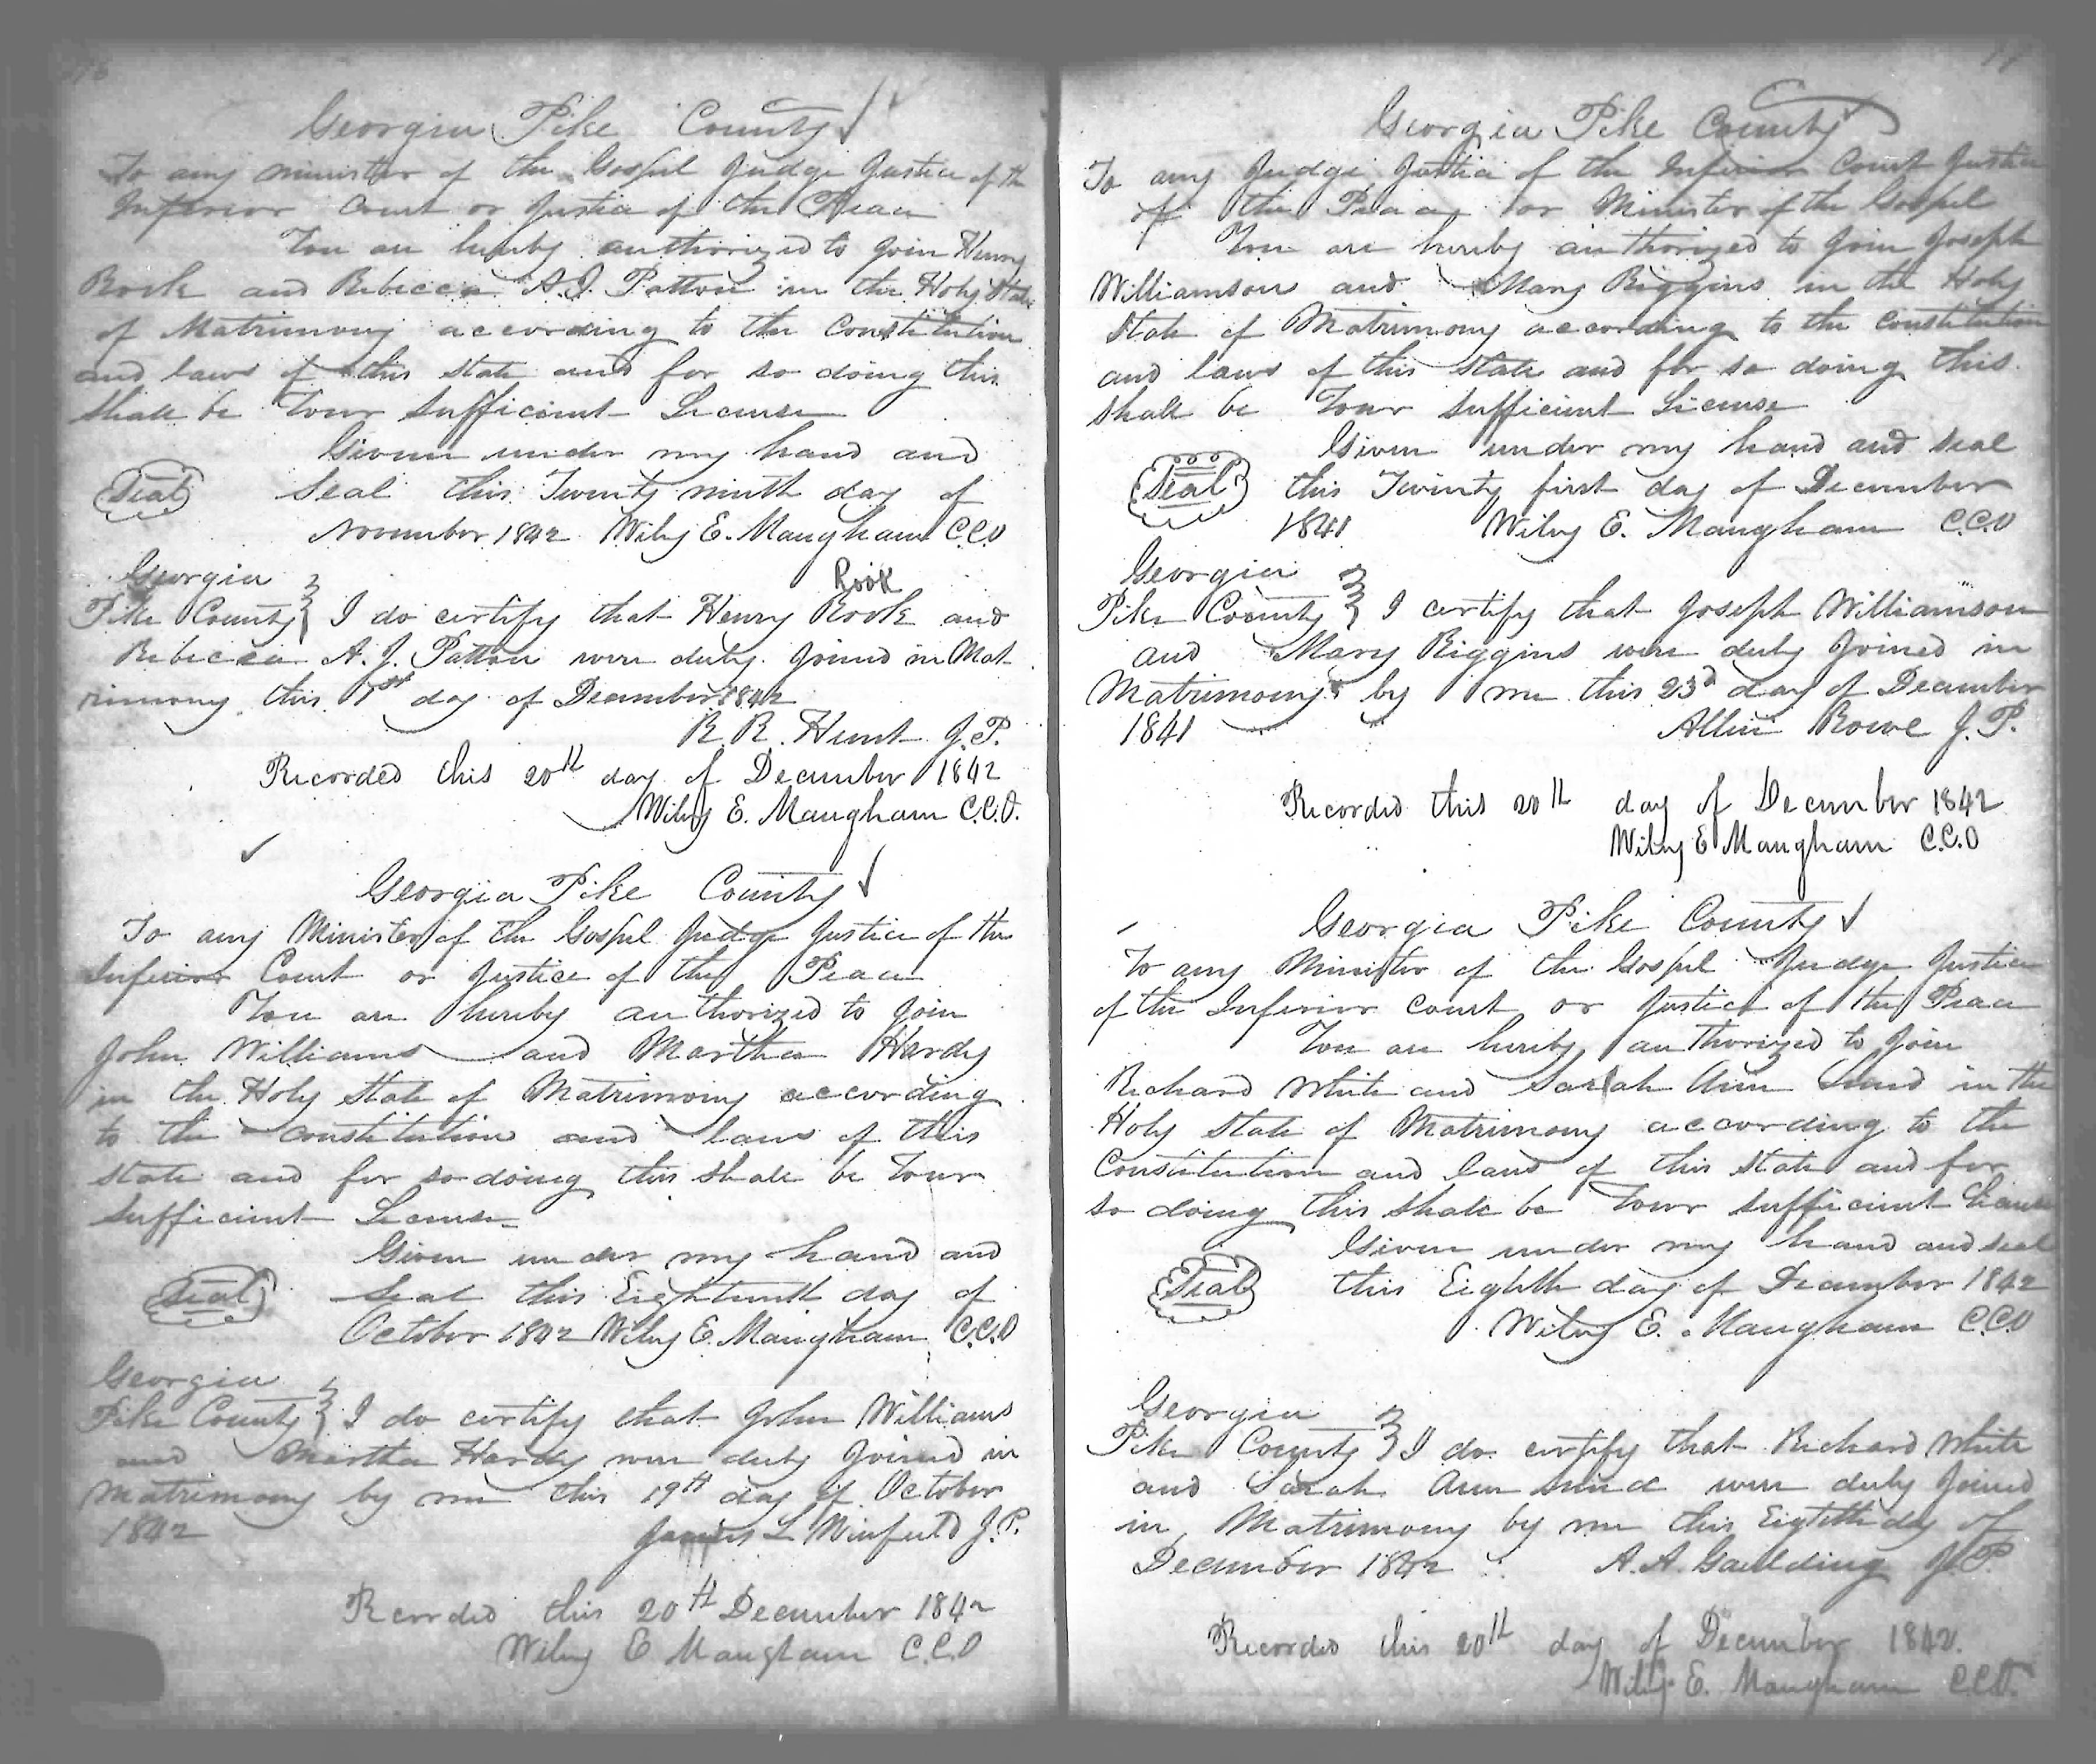 Georgia Pike County
To any minister of the Gospel Judge Justice of the
Inferior Court or Justice of the Peace
You are hereby authorized to join Henry
Rook and Rebecca A. J. Patton in the Holy State
of Matrimony according to the Constitution
and laws of this state and for so doing this
shall be Your sufficient License
Given under my hand and
Seal
Seal this Twenty ninth day of
November 1842 Wiley E. Maugham C.C.O
Georgia
Rook
Pike County } I do certify that Henry Rook and
Rebecca A. J. Patton were duly joined in Mat
rimony this 1st day of December 1842
R. R. Hunt J.P.
Recorded this 20th day of December 1842
Wiley E. Maugham C.C.O.
Georgia Pike County
To any Minister of the Gospel Judge Justice of the
Inferior Court or Justice of the Peace
You are hereby authorized to join
John Williams and Martha Hardy
in the Holy State of Matrimony according
to the constitution and laws of this
state and for so doing this shall be Your
sufficient License
Given under my hand and
Seal
Seal this Eighteenth day of
October 1842 Wiley E. Maugham C.C.O
Georgia
Pike County } I do certify that John Williams
and Martha Hardy were duly joined in
Matrimony by me this 19th day of October
1842 James L Winfield J.P.
Recorded this 20th December 1842
Wiley E Maugham C.C.O
Georgia Pike County
To any Judge Justice of the Inferior Court Justice
of the Peace or Minister of the Gospel
You are hereby authorized to join Joseph
Williamson and Mary Riggins in the Holy
State of Matrimony according to the constitution
and laws of this State and for so doing this
shall be Your sufficient License
Given under my hand and seal
Seal
this Twenty first day of December
1841 Wiley E. Maugham C.C.O
Georgia
Pike County } I certify that Joseph Williamson
and Mary Riggins were duly joined in
Matrimony by me this 23d day of December
1841 Allen Rowe J.P.
Recorded this 20th day of December 1842
Wiley E Maugham C.C.O
Georgia Pike County
To any Minister of the Gospel Judge Justice
of the Inferior Court or Justice of the Peace
You are hereby authorized to join
Richard White and Sarah Ann in the
Holy State of Matrimony according to the
Constitution and laws of this state and for
so doing this shall be Your sufficient License
Given under my hand and seal
Seal
this Eighth day of December 1842
Wiley E. Maugham C.C.O
Georgia
Pike County } I do certify that Richard White
and Sarah Ann were duly joined
in Matrimony by me this Eighth day of
December 1842 A. A. Gaulding J.P.
Recorded this 20th day of December 1842.
Wiley E. Maugham C.C.O.